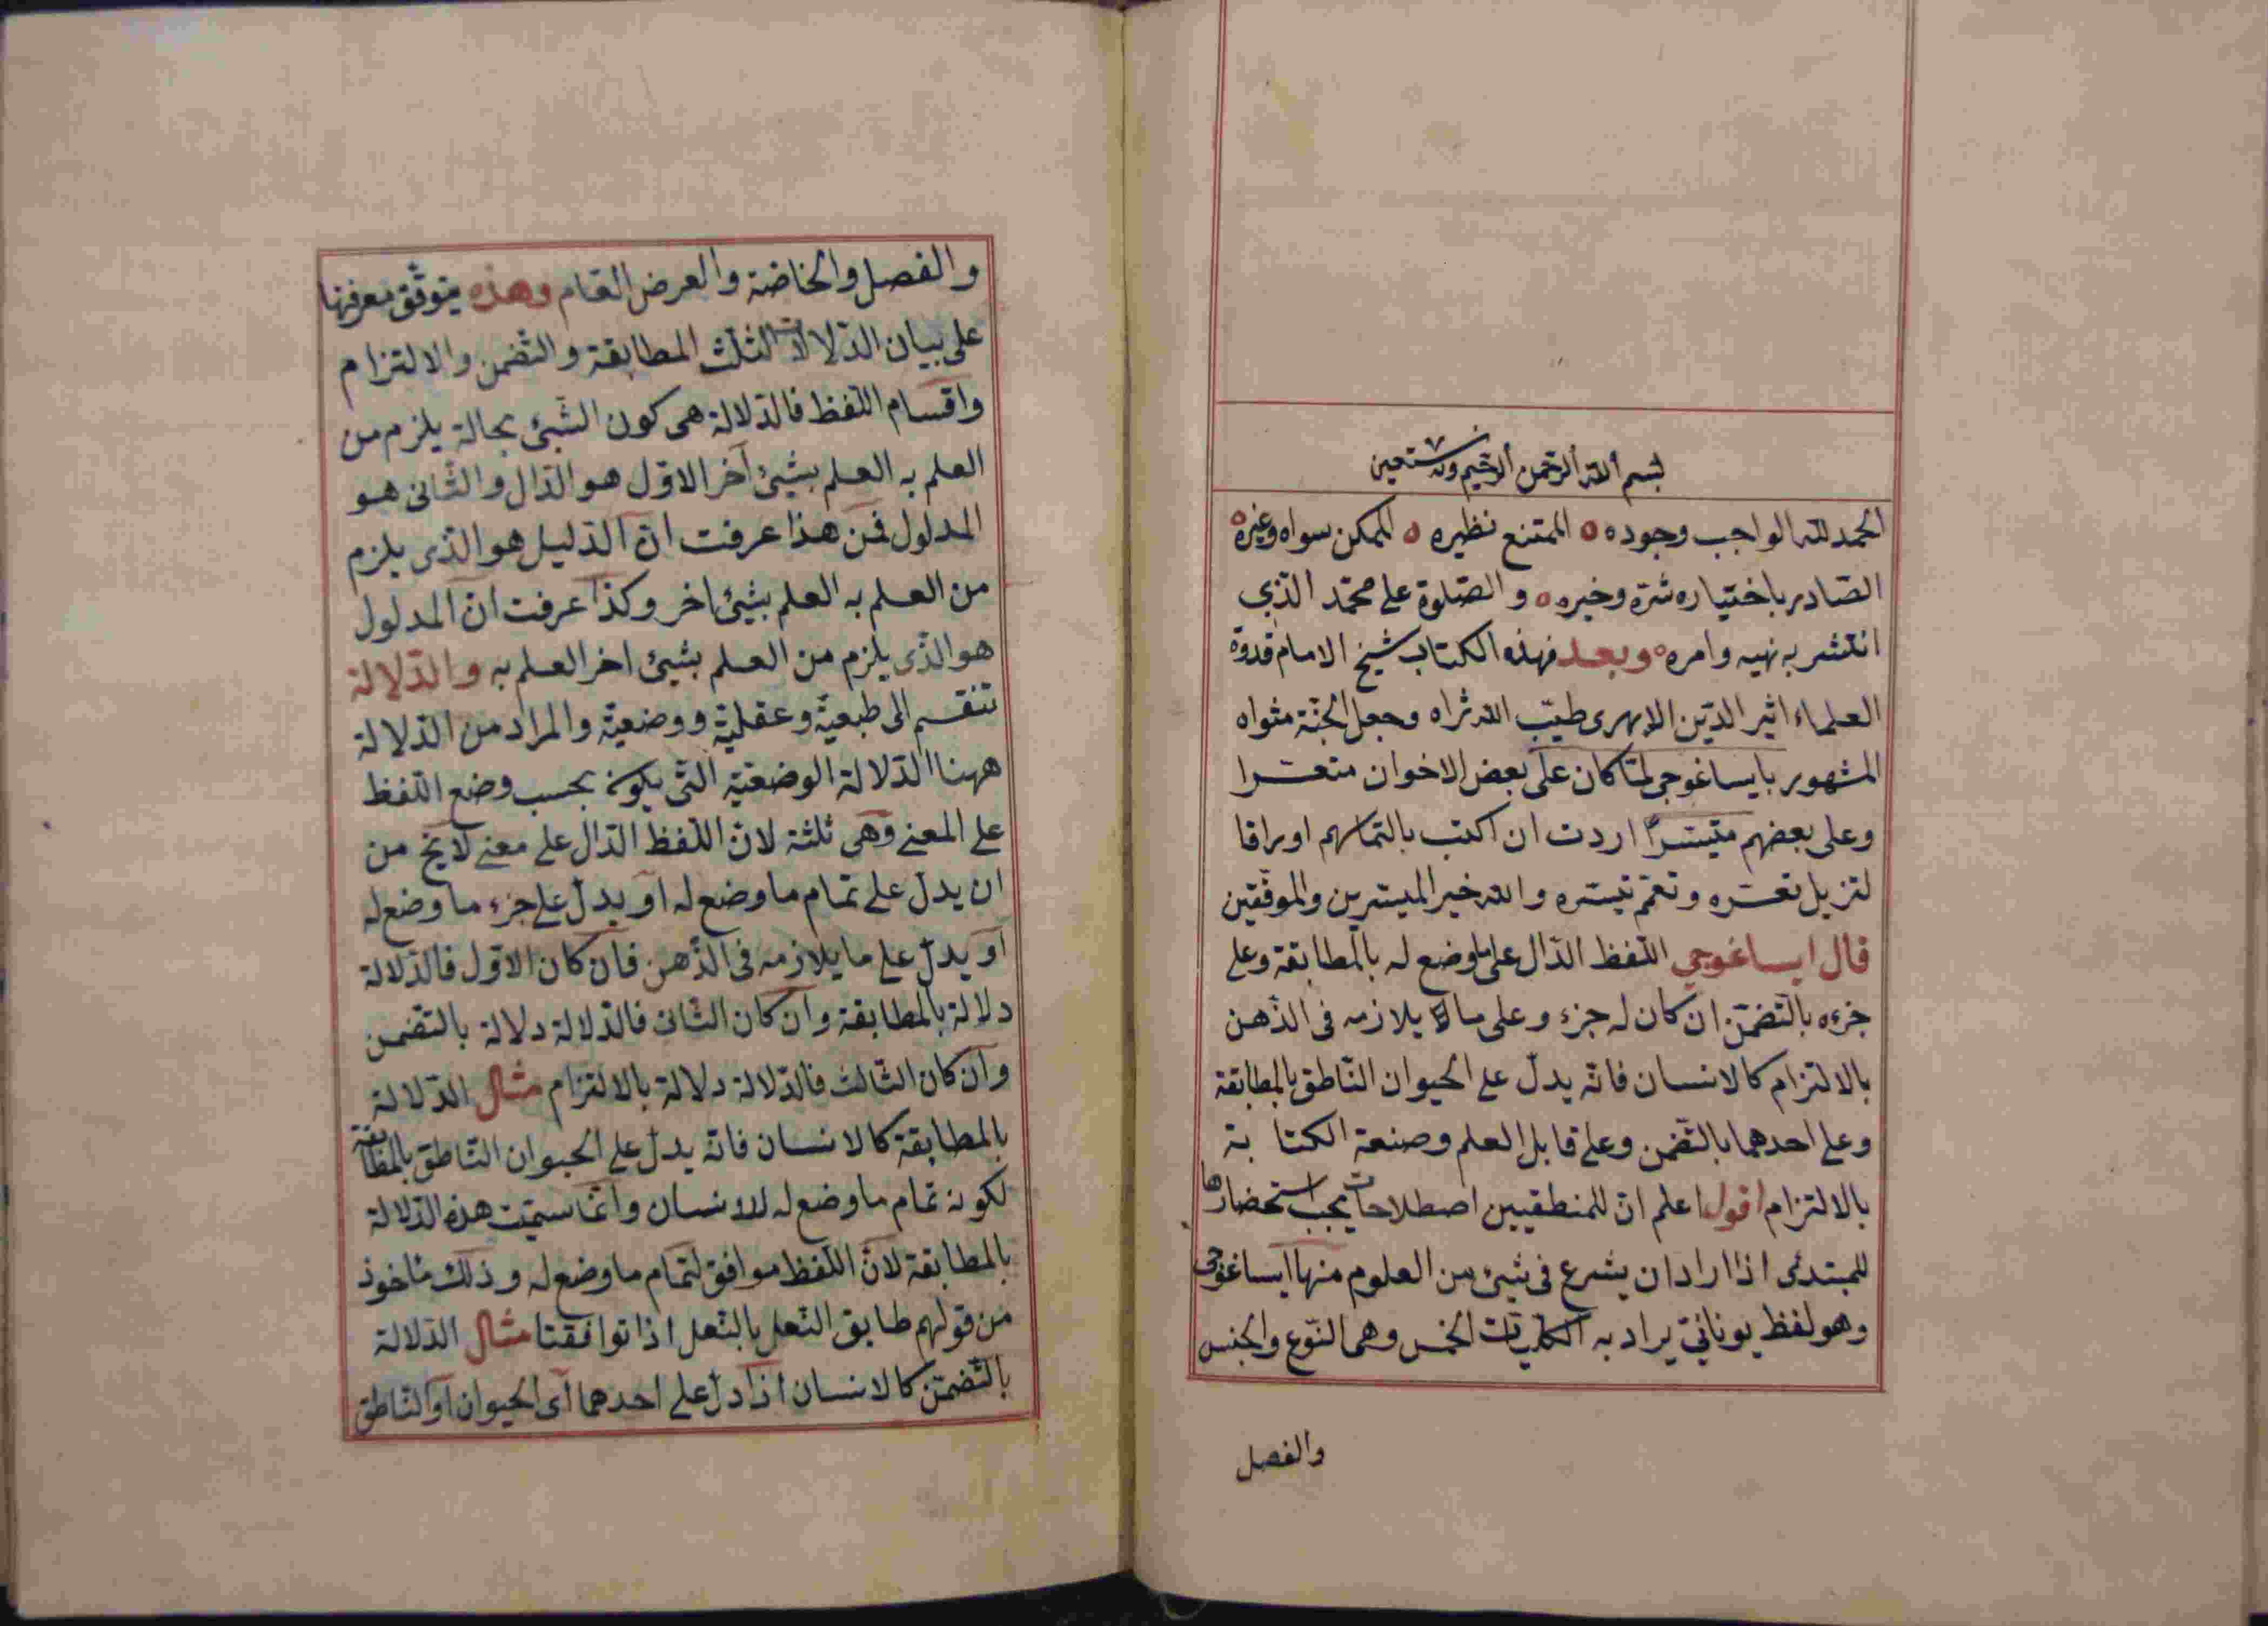 بسم الله الرحمن الرحيم وبه نستعين
الحمد لله الواجب وجوده ٥ الممتنع نظيره ٥ الممكن سواه وغيره ٥
الصّادر باختياره شرّه وخيره ٥ والصّلوة على محمّد الذّي
انتشر به نهيه وامره ٥ وبعد فهذه الكتاب شيخ الامام قدوة
العلماء اثير الدّين الابهرى طيّب الله ثراه وجعل الجنّة مثواه
المشهور بايساغوجى لمّا كان على بعض الاخوان متعسّرا
وعلى بعضهم متيسّراً اردت ان اكتب بالتماسهم اوراقا
لتزيل تعسّره وتعمّم تيسّره والله خير الميسّرين والموفّقين
قال ايساغوجي اللّفظ الدّال على ما وضع له بالمطابقة وعلى
جزءه بالتّضمّن ان كان له جزء وعلى ما يلازمه فى الذّهن
بالالتزام كالانسان فانّه يدلّ على الحيوان النّاطق بالمطابقة
وعلى احدهما بالتّضمن وعلى قابل العلم وصنعة الكتابة
بالالتزام اقول اعلم انّ للمنطقيين اصطلاحات يجب استحضارها
للمبتدئ اذا اراد ان يشرع فى شيئ من العلوم منها ايساغوجى
وهو لفظ يونانيّ يراد به الكليّات الخمس وهى النّوع والجنس
والفصل
والفصل والخاصّة والعرض العّام وهذه يتوقّق معرفتها
على بيان الدّلالات الثلث المطابقة والتّضمن والالتزام
واقسام اللّفظ فالدّلالة هى كون الشّيئ بحالة يلزم من
العلم به العلم بشيئ آخر الاوّل هو الدّال والثّانى هو
المدلول فمن هذا عرفت انّ الدّليل هو الذّى يلزم
من العلم به العلم بشيئ اخر وكذا عرفت انّ المدلول
هو الذّى يلزم من العلم بشيئ اخر العلم به والدّلالة
تنقسم الى طبعيّة وعقليّة ووضعيّة والمراد من الدّلالة
ههنا الدّلالة الوضعيّة التّى يكون بحسب وضع اللّفظ
على المعنى وهى ثلثة لانّ اللّفظ الدّال على معنى لا يخ من
ان يدلّ على تمام ما وضع له او يدلّ على جزء ما وضع له
او يدلّ على ما يلازمه فى الذّهن فان كان الاوّل فالدّلالة
دلالة بالمطابقة وان كان الثّانى فالدّلالة دلالة بالتّضمن
وان كان الثّالث فالدّلالة دلالة بالالتزام مثال الدّلالة
بالمطابقة كالانسان فانّه يدلّ على الحيوان النّاطق بالمطابقة
لكونه تمام ما وضع له للانسان وانّما سمّيت هذه الدّلالة
بالمطابقة لانّ اللّفظ موافق لتمام ما وضع له وذلك مأخوذ
من قولهم طابق النّعل بالنّعل اذا توافقتا مثال الدّلالة
بالتّضمّن كالانسان اذا دلّ على احدهما اى الحيوان او النّاطق